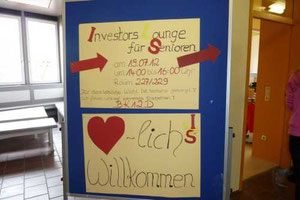 Investors Lounge
für Senioren
am 19.07.12
um 14:00 bis 16:00 Uhr
Raum: 227/229
BK12D
-lich
Willkommen
IS